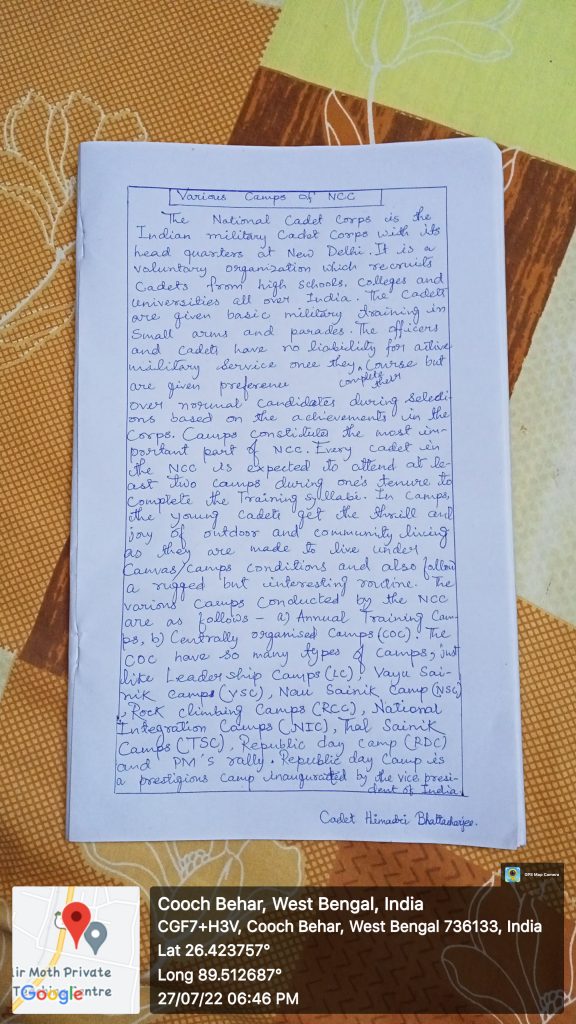 Various Camps of NCC
The National Cadet Corps is the
Indian military Cadet Corps with its
head quarters at New Delhi. It is a
voluntary organization which recruits
Cadets from high schools, colleges and
universities all over India. The Cadets
are given basic military training in
Small arms and parades. The officers
and cadets have no liability for active
military service once they complete their Course but
are given preference
over normal candidates during selecti-
ons based on the achievements in the
Corps. Camps constitutes the most im-
portant part of NCC. Every cadet in
the NCC is expected to attend at le-
ast two camps during one's tenure to
Complete the Training syllabi. In Camps,
the young cadets get the thrill and
joy of outdoor and community living
as they are made to live under
Canvas/Camps conditions and also follow
a rugged but interesting routine. The
various camps conducted by the NCC
are as follows - a) Annual Training Cam-
ps, b) Centrally organised Camps (COC). The
COC have so many types of camps; just
like Leadership Camps (LC), Vayu Sai-
nik Camps (VSC), Nau Sainik Camp (NSC)
, Rock climbing Camps (RCC), National
Integration Camps (NIC), Thal Sainik
Camps (TSC), Republic day camp (RDC)
and PM's rally. Republic day Camp is
a prestigious camp inaugurated by the vice presi-
dent of India.
Cadet Himadri Bhattacharjee.
GPS Map Camera
Cooch Behar, West Bengal, India
CGF7+H3V, Cooch Behar, West Bengal 736133, India
Lat 26.423757°
Long 89.512687°
27/07/22 06:46 PM
ir Moth Private
Google